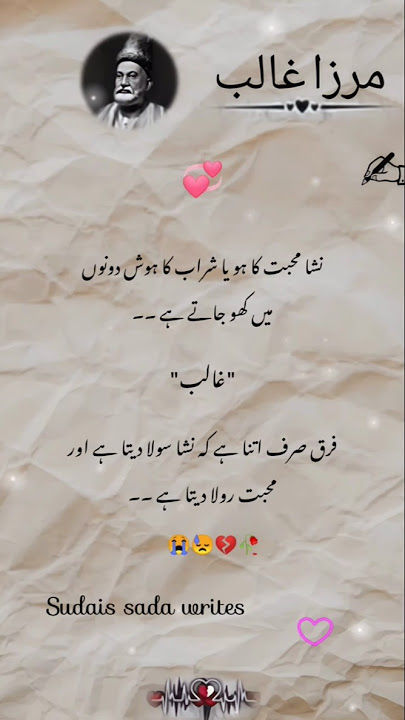 مرزا غالب
نشا محبت کا ہو یا شراب کا ہوش دونوں
میں کھو جاتے ہے ۔۔
"غالب"
فرق صرف اتنا ہے کہ نشا سولا دیتا ہے اور
محبت رولا دیتا ہے ۔۔
Sudais sada writes